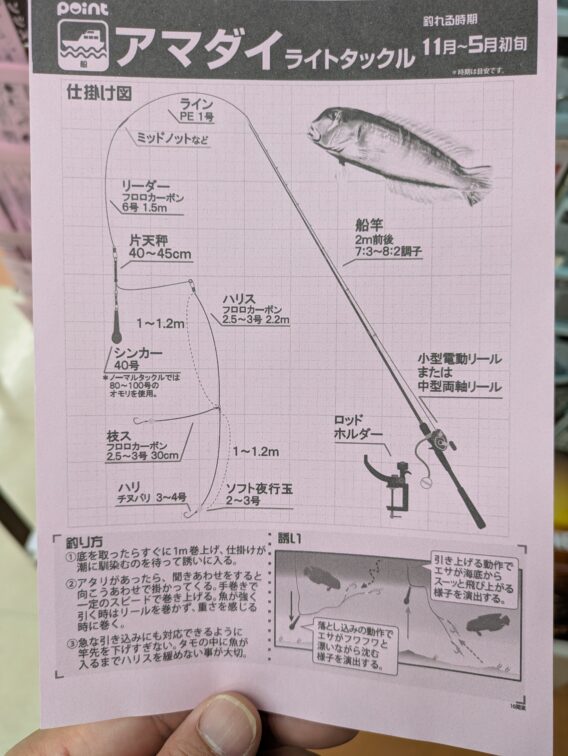 point
船
アマダイ ライトタックル
釣れる時期
11月～5月初旬
＊時期は目安です。
仕掛け図
ライン
PE 1号
ミッドノットなど
リーダー
フロロカーボン
6号 1.5m
片天秤
40～45cm
1～1.2m
ハリス
フロロカーボン
2.5～3号 2.2m
シンカー
40号
＊ノーマルタックルでは
80～100号の
オモリを使用。
枝ス
フロロカーボン
2.5～3号 30cm
1～1.2m
ハリ
チヌバリ 3～4号
ソフト夜行玉
2～3号
船竿
2m前後
7:3～8:2調子
小型電動リール
または
中型両軸リール
ロッド
ホルダー
釣り方
①底を取ったらすぐに1m巻上げ、仕掛けが
潮に馴染むのを待って誘いに入る。
②アタリがあったら、聞きあわせをすると
向こうあわせで掛かってくる。手巻きで
一定のスピードで巻き上げる。魚が強く
引く時はリールを巻かず、重さを感じる
時に巻く。
③急な引き込みにも対応できるように
竿先を下げすぎない。タモの中に魚が
入るまでハリスを緩めない事が大切。
誘い
引き上げる動作で
エサが海底から
スーッと飛び上がる
様子を演出する。
落とし込みの動作で
エサがフワフワと
漂いながら沈む
様子を演出する。